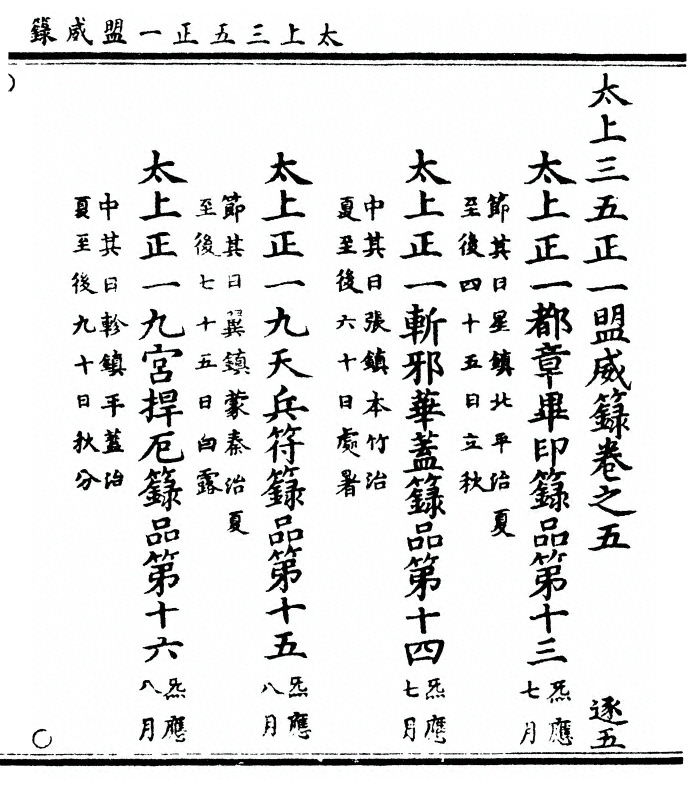 太上三五正一盟威籙
太上三五正一盟威籙卷之五 逐五
太上正一都章畢印籙品第十三 炁應七月
節其日星鎮北平治夏
至後四十五日立秋
太上正一斬邪華蓋籙品第十四 炁應七月
中其日張鎮本竹治
夏至後六十日處暑
太上正一九天兵符籙品第十五 炁應八月
節其日翼鎮蒙秦治夏
至後七十五日白露
太上正一九宮捍厄籙品第十六 炁應八月
中其日軫鎮平蓋治
夏至後九十日秋分